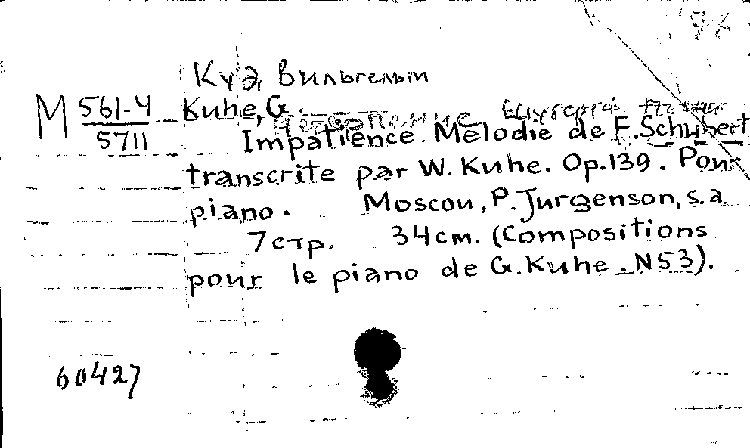 Куэ, Вильгельм
М 561-4
5711
Kuhe, G.
Impatience. Mélodie de F. Schubert
transcrite par W. Kuhe. Op. 139. Pour
piano. Moscou, P. Jurgenson, s.a.
7 стр. 34 см. (Compositions
pour le piano de G. Kuhe. N 53).
60427